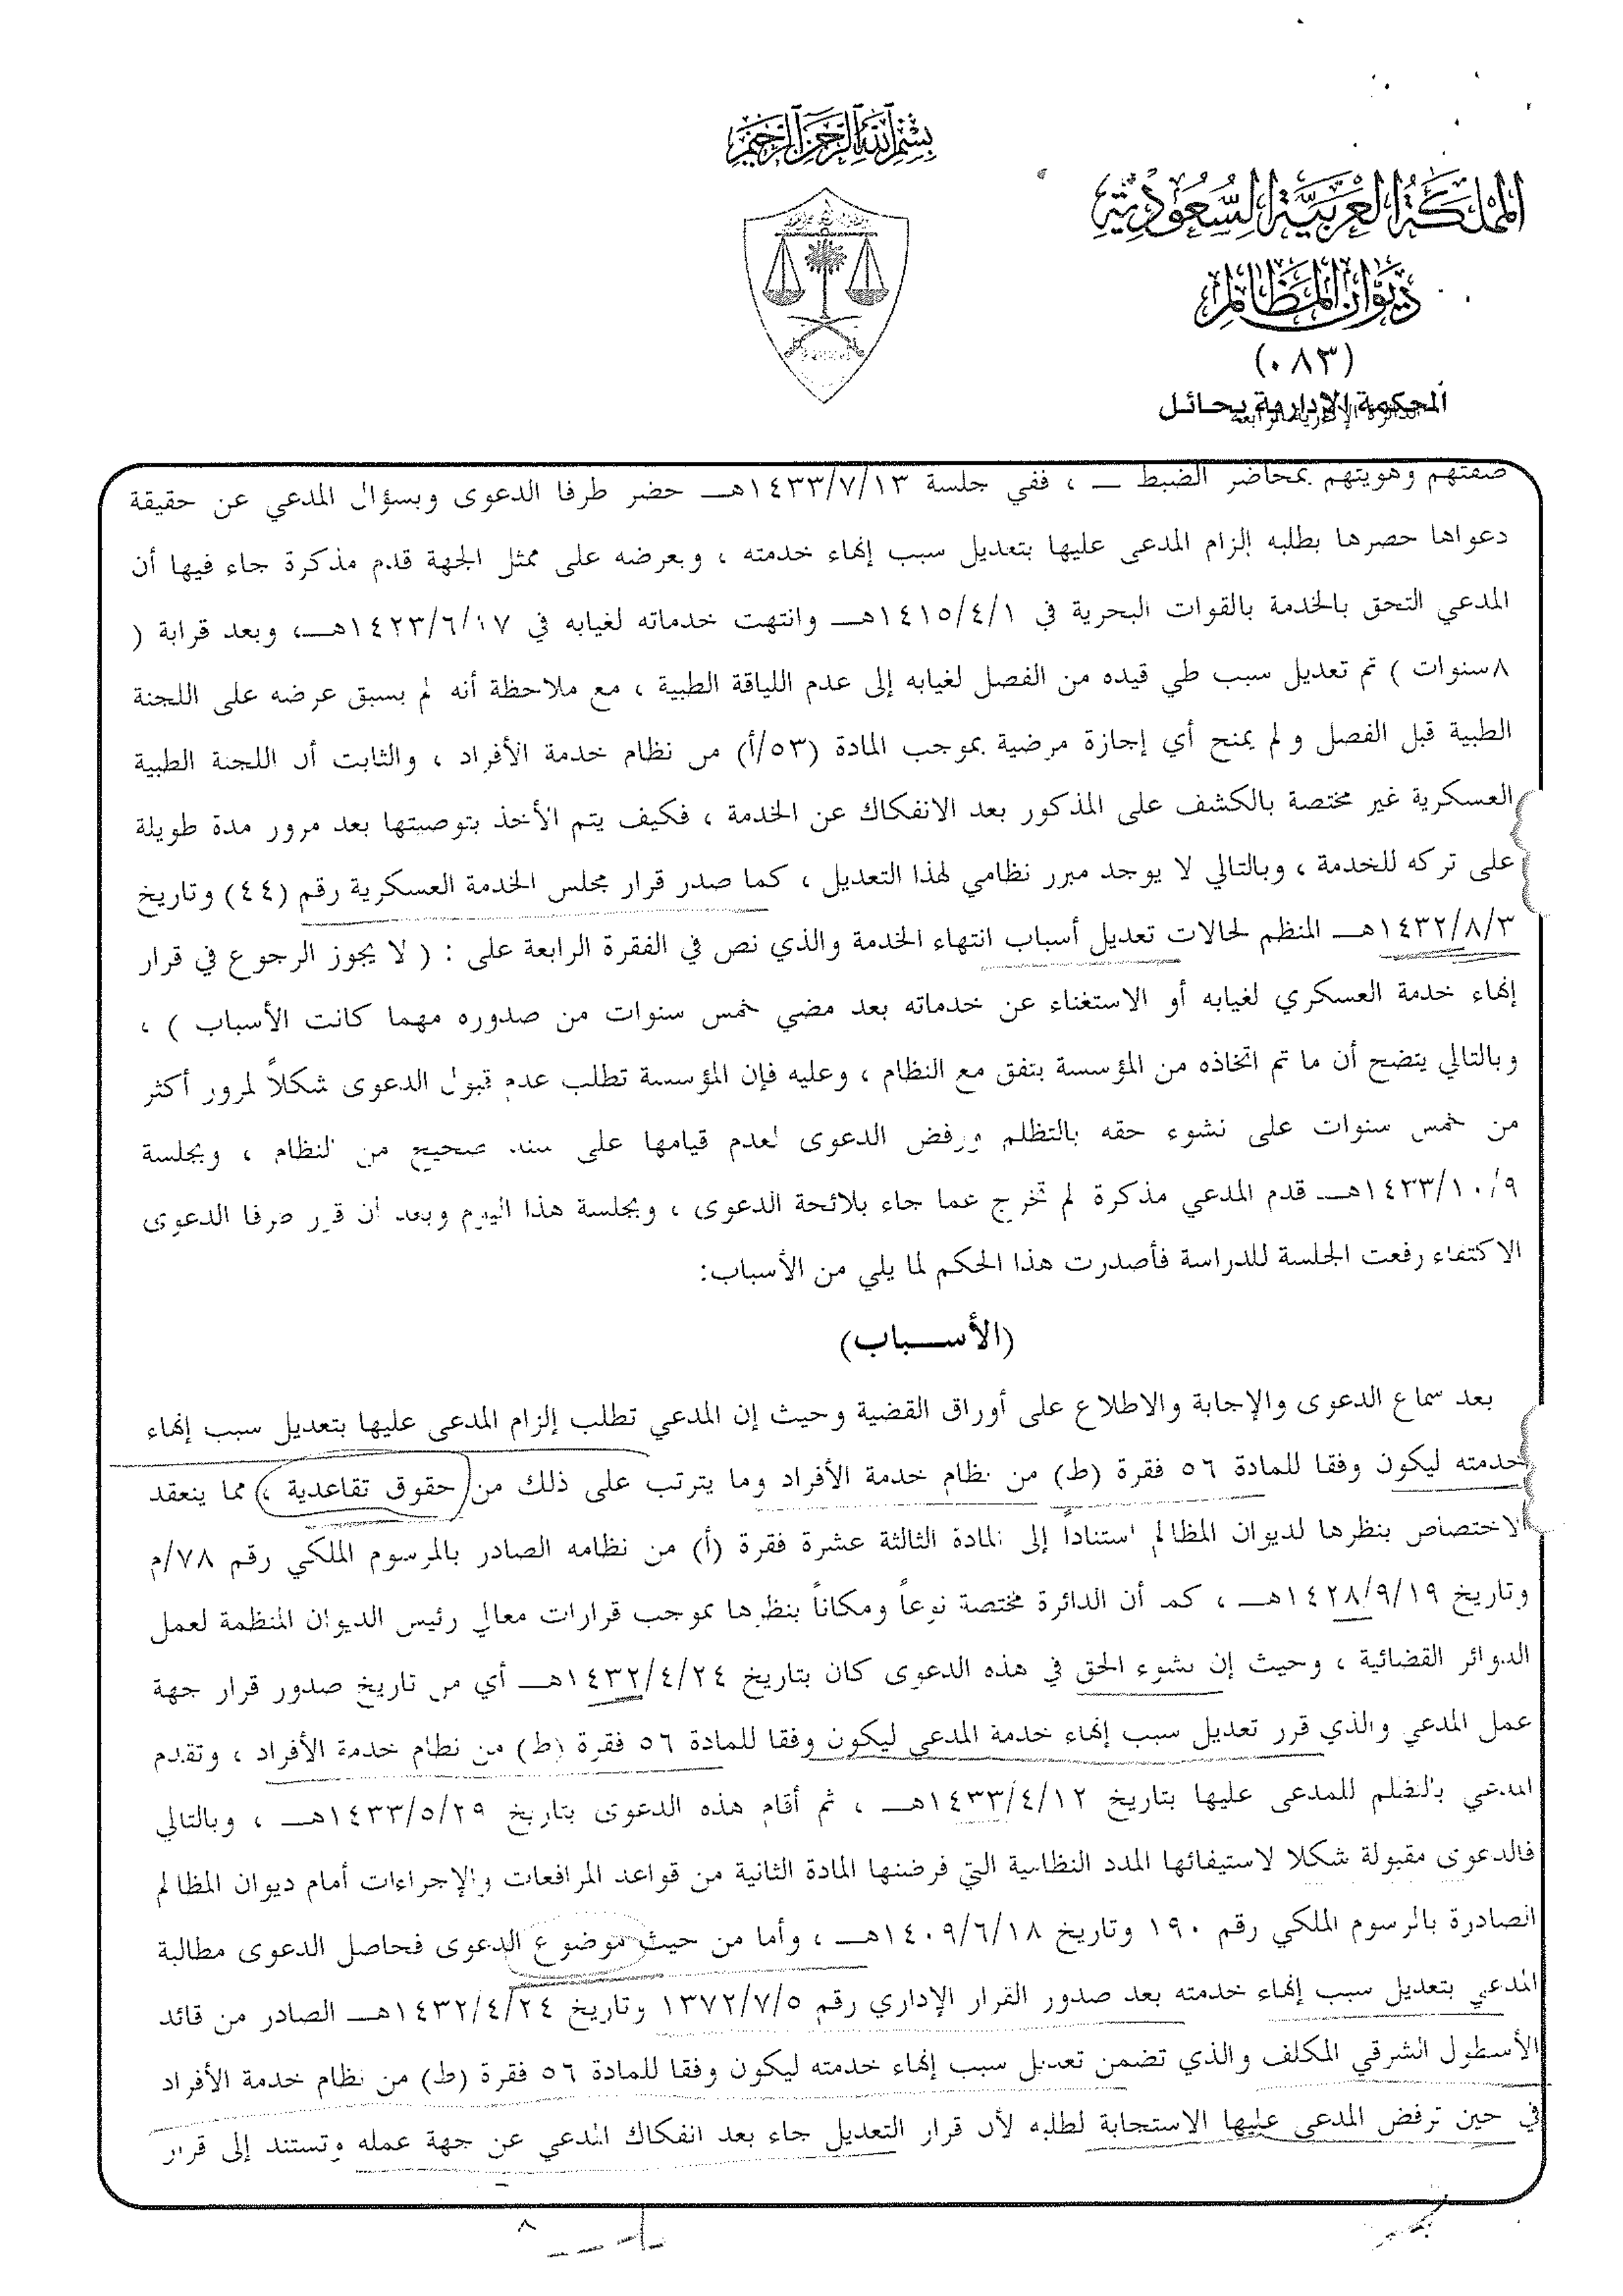 بسم الله الرحمن الرحيم
المملكة العربية السعودية
ديوان المظالم
(٠٨٣)
المحكمة الإدارية بحائل
الدائرة الإدارية الرابعة
صفتهم وهويتهم بمحاضر الضبط ــ ، ففي جلسة ١٤٣٣/٧/١٣هــ حضر طرفا الدعوى وبسؤال المدعي عن حقيقة
دعواها حصرها بطلبه إلزام المدعى عليها بتعديل سبب إنهاء خدمته ، وبعرضه على ممثل الجهة قدم مذكرة جاء فيها أن
المدعي التحق بالخدمة بالقوات البحرية في ١٤١٥/٤/١هــ وانتهت خدماته لغيابه في ١٤٢٣/٦/١٧هــ، وبعد قرابة (
٨سنوات ) تم تعديل سبب طي قيده من الفصل لغيابه إلى عدم اللياقة الطبية ، مع ملاحظة أنه لم يسبق عرضه على اللجنة
الطبية قبل الفصل و لم يمنح أي إجازة مرضية بموجب المادة (٥٣/أ) من نظام خدمة الأفراد ، والثابت أن اللجنة الطبية
العسكرية غير مختصة بالكشف على المذكور بعد الانفكاك عن الخدمة ، فكيف يتم الأخذ بتوصيتها بعد مرور مدة طويلة
على تركه للخدمة ، وبالتالي لا يوجد مبرر نظامي لهذا التعديل ، كما صدر قرار مجلس الخدمة العسكرية رقم (٤٤) وتاريخ
١٤٣٢/٨/٣هــ المنظم لحالات تعديل أسباب انتهاء الخدمة والذي نص في الفقرة الرابعة على : ( لا يجوز الرجوع في قرار
إنهاء خدمة العسكري لغيابه أو الاستغناء عن خدماته بعد مضي خمس سنوات من صدوره مهما كانت الأسباب ) ،
وبالتالي يتضح أن ما تم اتخاذه من المؤسسة يتفق مع النظام ، وعليه فإن المؤسسة تطلب عدم قبول الدعوى شكلاً لمرور أكثر
من خمس سنوات على نشوء حقه بالتظلم ورفض الدعوى لعدم قيامها على سند صحيح من النظام ، وبجلسة
١٤٣٣/١٠/٩هــ قدم المدعي مذكرة لم تخرج عما جاء بلائحة الدعوى ، وبجلسة هذا اليوم وبعد أن قرر طرفا الدعوى
الاكتفاء رفعت الجلسة للدراسة فأصدرت هذا الحكم لما يلي من الأسباب:
(الأســباب)
بعد سماع الدعوى والإجابة والاطلاع على أوراق القضية وحيث إن المدعي تطلب إلزام المدعى عليها بتعديل سبب إنهاء
خدمته ليكون وفقا للمادة ٥٦ فقرة (ط) من نظام خدمة الأفراد وما يترتب على ذلك من حقوق تقاعدية ، مما ينعقد
الاختصاص بنظرها لديوان المظالم استناداً إلى المادة الثالثة عشرة فقرة (أ) من نظامه الصادر بالمرسوم الملكي رقم ٧٨/م
وتاريخ ١٤٢٨/٩/١٩هــ ، كما أن الدائرة مختصة نوعاً ومكاناً بنظرها بموجب قرارات معالي رئيس الديوان المنظمة لعمل
الدوائر القضائية ، وحيث إن نشوء الحق في هذه الدعوى كان بتاريخ ١٤٣٢/٤/٢٤هــ أي من تاريخ صدور قرار جهة
عمل المدعي والذي قرر تعديل سبب إنهاء خدمة المدعي ليكون وفقا للمادة ٥٦ فقرة (ط) من نظام خدمة الأفراد ، وتقدم
المدعي بالتظلم للمدعى عليها بتاريخ ١٤٣٣/٤/١٢هــ ، ثم أقام هذه الدعوى بتاريخ ١٤٣٣/٥/٢٩هــ ، وبالتالي
فالدعوى مقبولة شكلا لاستيفائها المدد النظامية التي فرضتها المادة الثانية من قواعد المرافعات والإجراءات أمام ديوان المظالم
الصادرة بالمرسوم الملكي رقم ١٩٠ وتاريخ ١٤٠٩/٦/١٨هــ ، وأما من حيث موضوع الدعوى فحاصل الدعوى مطالبة
المدعي بتعديل سبب إنهاء خدمته بعد صدور القرار الإداري رقم ١٣٧٢/٧/٥ وتاريخ ١٤٣٢/٤/٢٤هــ الصادر من قائد
الأسطول الشرقي المكلف والذي تضمن تعديل سبب إنهاء خدمته ليكون وفقا للمادة ٥٦ فقرة (ط) من نظام خدمة الأفراد
في حين ترفض المدعى عليها الاستجابة لطلبه لأن قرار التعديل جاء بعد انفكاك المدعي عن جهة عمله وتستند إلى قرار